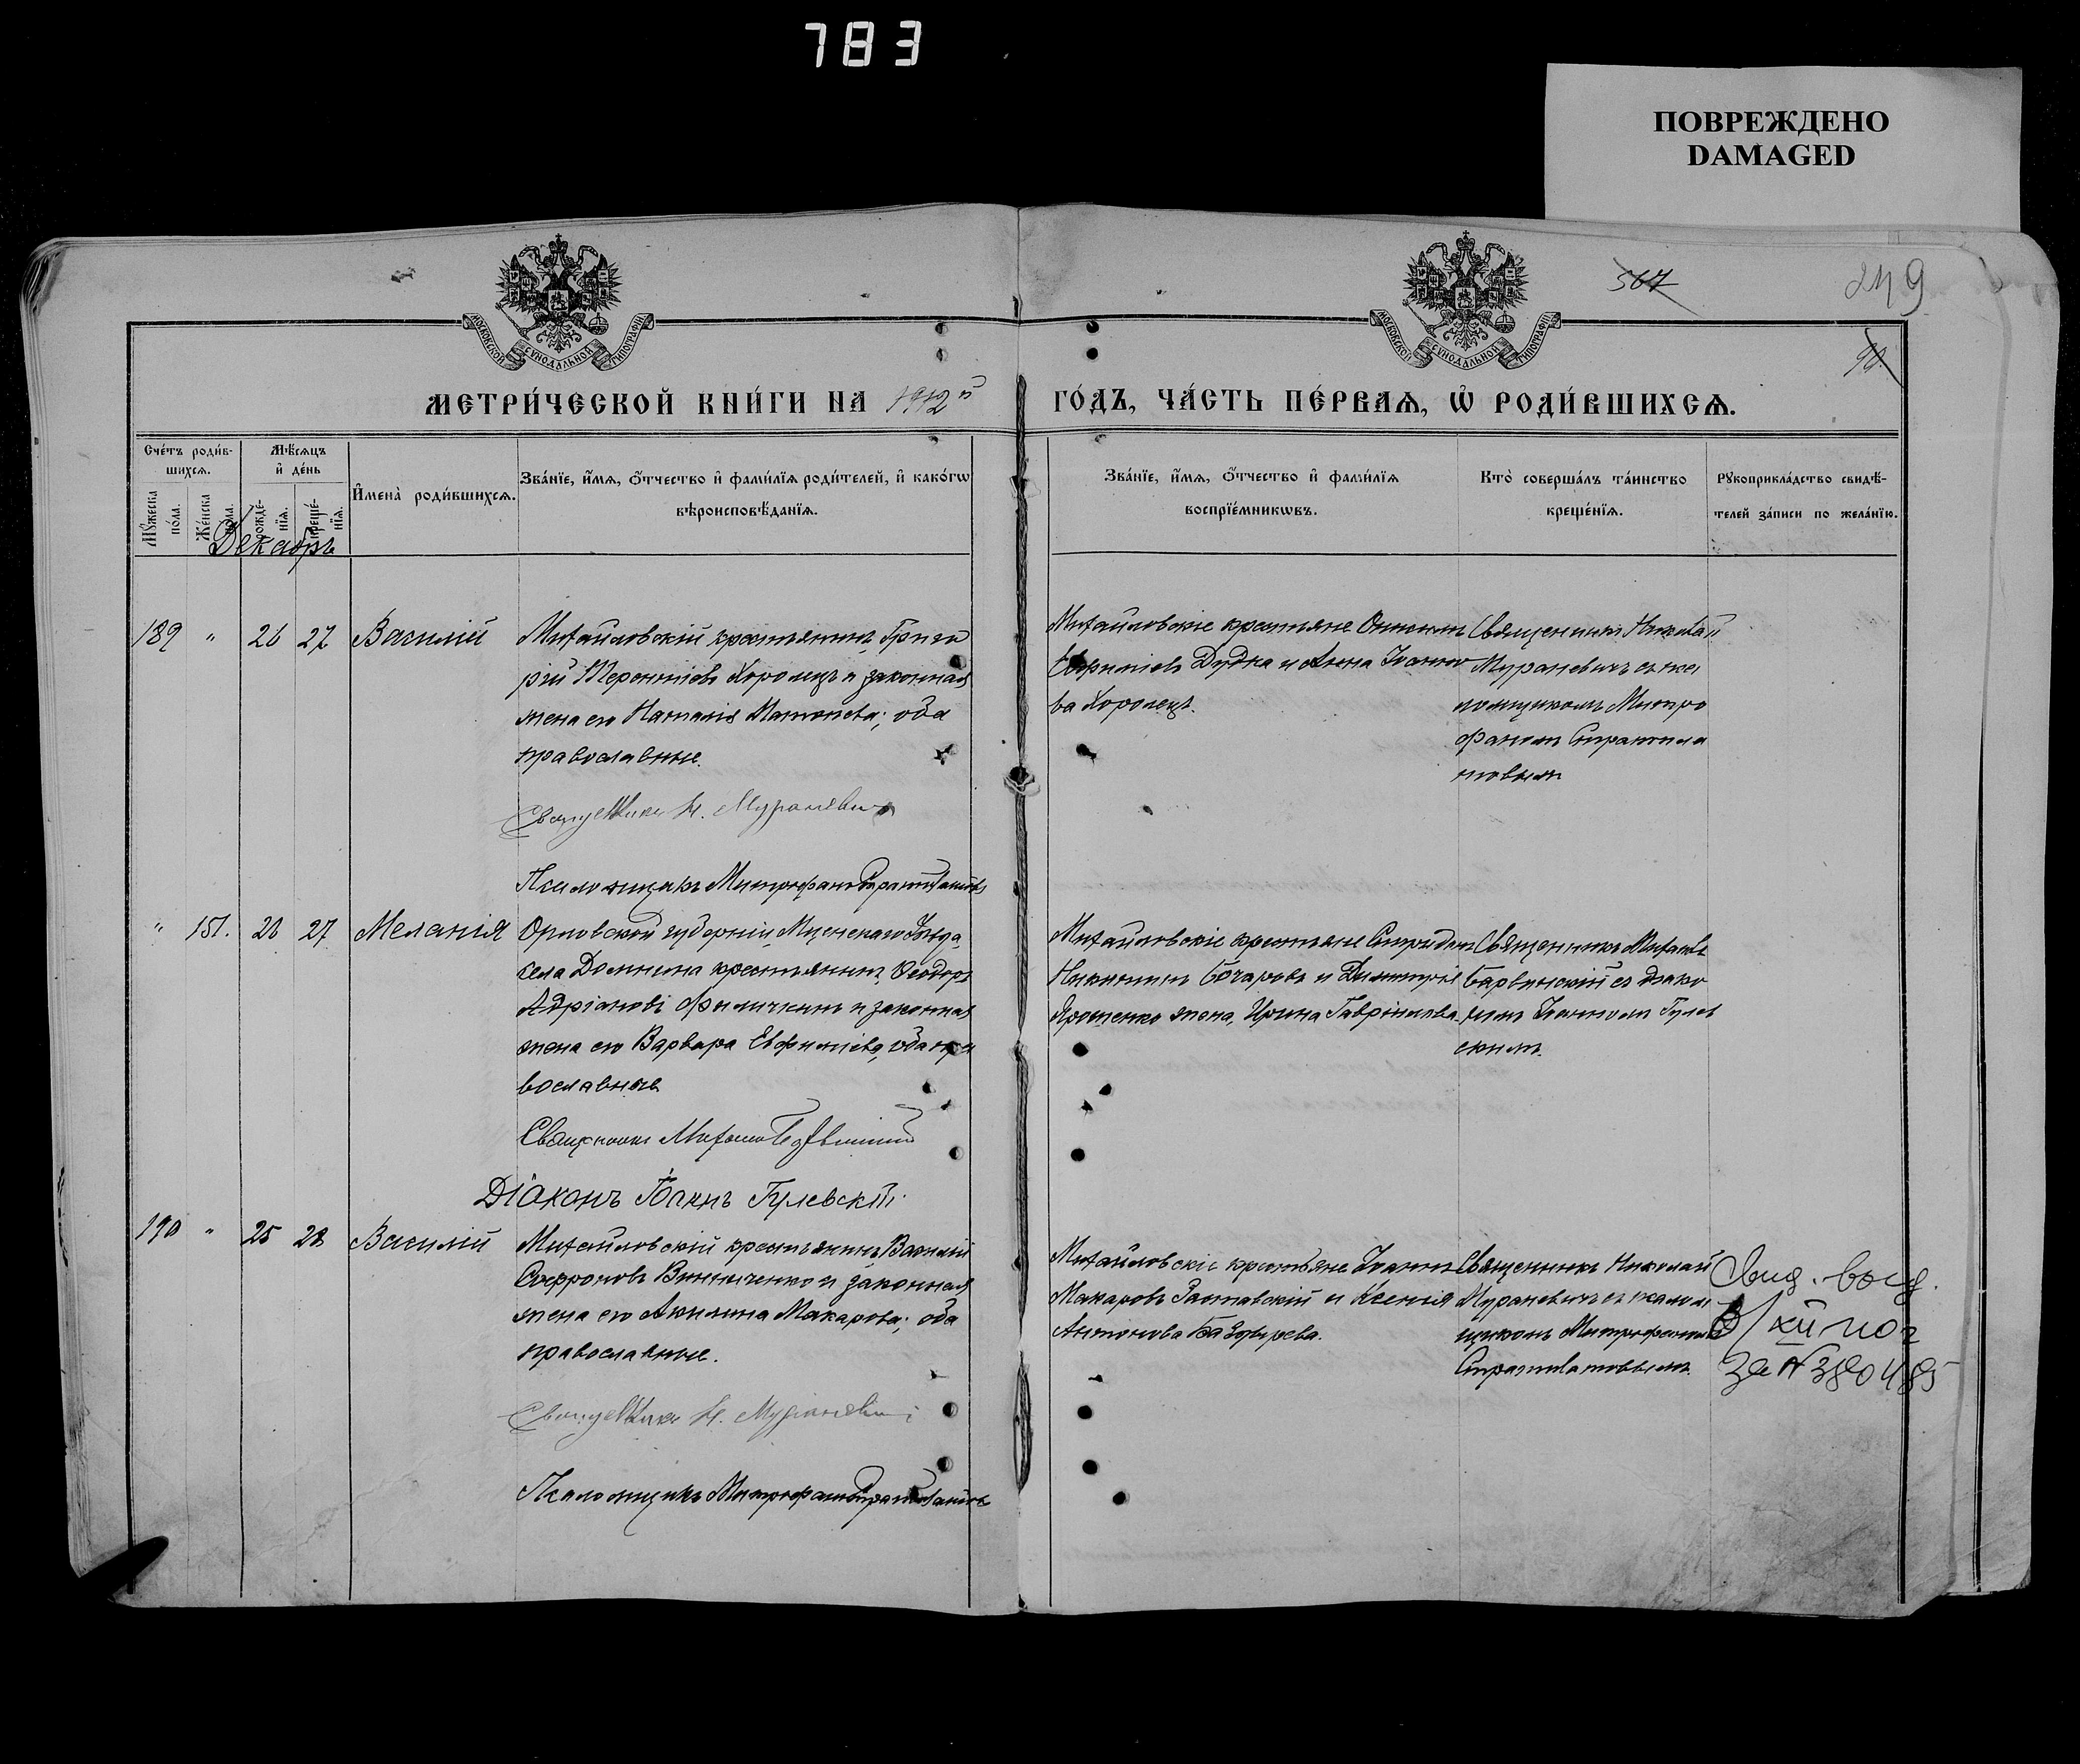 783
ПОВРЕЖДЕНО
DAMAGED
МОСКОВСКОЙ СѴНОДАЛЬНОЙ ТИПОГРАФІИ
МОСКОВСКОЙ СѴНОДАЛЬНОЙ ТИПОГРАФІИ
567
249
90
МЕТРИ́ЧЕСКОЙ КНИ́ГИ НА 1912й
ГО́ДЪ, ЧА́СТЬ ПЕ́РВАѦ, Ѽ РОДИ́ВШИХСѦ.
Сче́тъ роди́в-
шихсѧ.
Мѣ́сѧцъ
и҆ де́нь
Мꙋ́жеска
по́ла.
Же́нска
по́ла.
рожде́-
нїѧ.
креще́-
нїѧ.
И҆мена̀ роди́вшихсѧ.
Зва́нїе, и҆́мѧ, ѻ҆́тчество и҆ фами́лїѧ роди́телей, и҆ како́гѡ
вѣроисповѣ́данїѧ.
Зва́нїе, и҆́мѧ, ѻ҆́тчество и҆ фами́лїѧ
воспрїе́мникѡвъ.
Кто̀ соверша́лъ та́инство
креще́нїѧ.
Рꙋкоприкла́дство свидѣ́-
телей за́писи по жела́нїю.
Декабрь
189 " 26 27 Василій
Михайловскій крестьянинъ, Григо
рій Терентіевъ Хоролецъ и законная
жена его Наталія Матѳеева; оба
православные.
Священникъ Н. Мураневичъ
Псаломщикъ Митрофанъ Стратилатовъ
Михайловскіе крестьяне Онисимъ
Евфиміевъ Дудка и Анна Іоанно
ва Хоролецъ.
Священникъ Николай
Мураневичъ съ пса
ломщикомъ Митро
фаномъ Стратила
товымъ
" 151. 23 27 Меланія
Орловской губерніи, Мценскаго Уѣзда,
села Домнина крестьянинъ, Ѳеодоръ
Адріановъ и законная
жена его Варвара Евфиміева, оба пра
вославные
Священникъ Михаилъ Барвинскій
Діаконъ Іоаннъ Гулевскій.
Михайловскіе крестьяне Спиридонъ
Никитинъ Бочаровъ и Димитрія
Ярошенко жена, Ирина Гавріилова.
Священникъ Михаилъ
Барвинскій съ діако
номъ Іоанномъ Гулев
скимъ.
190 " 25 28 Василій
Михайловскій крестьянинъ, Василій
Софроновъ Винниченко и законная
жена его Акилина Макарова; оба
православные.
Священникъ Н. Мураневичъ
Псаломщикъ Митрофанъ Стратилатовъ
Михайловскіе крестьяне Іоаннъ
Макаровъ Заставскій и Ксенія
Антонова Бабзырева.
Священникъ Николай
Мураневичъ съ псалом
щикомъ Митрофаномъ
Стратилатовымъ.
Свид. выд.
за № 380485